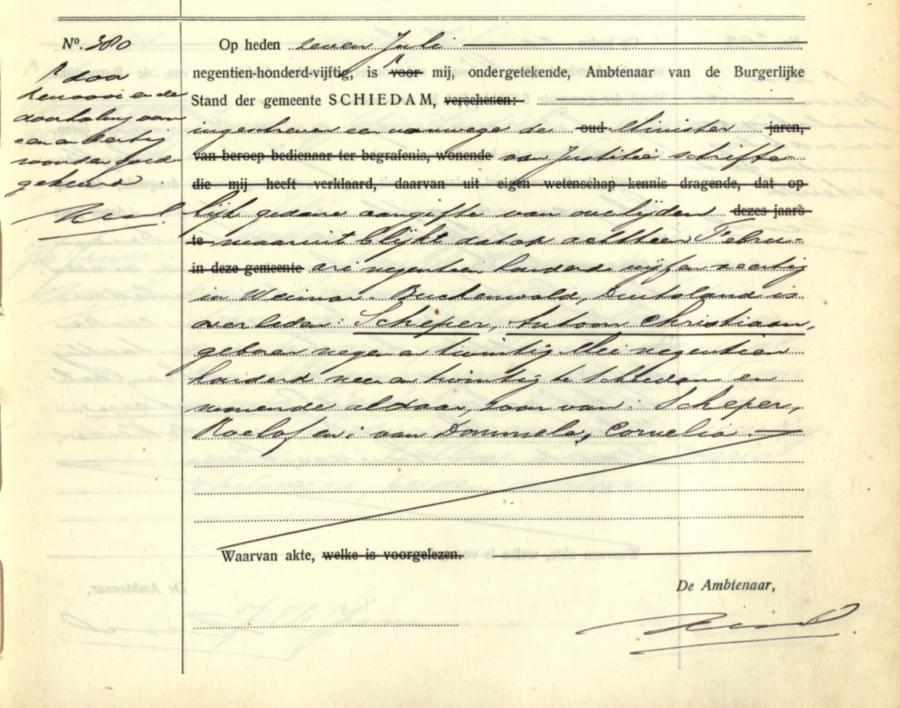 No. 380
Op heden zeven Juli
negentien-honderd-vijftig, is voor mij, ondergetekende, Ambtenaar van de Burgerlijke
Stand der gemeente SCHIEDAM, verschenen:
ingeschreven een vanwege de oud Minister jaren,
van beroep bedienaar ter begrafenis, wonende van Justitie schrifte-
die mij heeft verklaard, daarvan uit eigen wetenschap kennis dragende, dat op
lijk gedane aangifte van overlijden dezes jaars
te waaruit blijkt dat op achttien Febru-
in deze gemeente ari negentien honderd vijf en veertig
in Weimar-Buchenwald, Duitsland is
overleden: Scheper, Antoon Christiaan,
geboren negen en twintig Mei negentien
honderd twee en twintig te Schiedam en
wonende aldaar, zoon van: Scheper,
Roelof en: van Dommele, Cornelia.
Waarvan akte, welke is voorgelezen.
De Ambtenaar,
door
renvooi en de
doorhaling van
een en dertig
woorden goed-
gekeurd